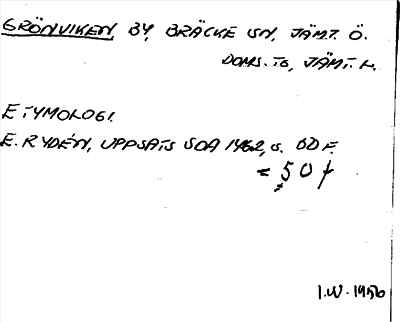 GRÖNVIKEN BY, BRÄCKE SN, JÄMT. Ö.
DOMS. TG, JÄMT. L.
ETYMOLOGI.
E. RYDÉN, UPPSATS SOA 1962, S. 50 F.
= 50 f
I.W. 1956